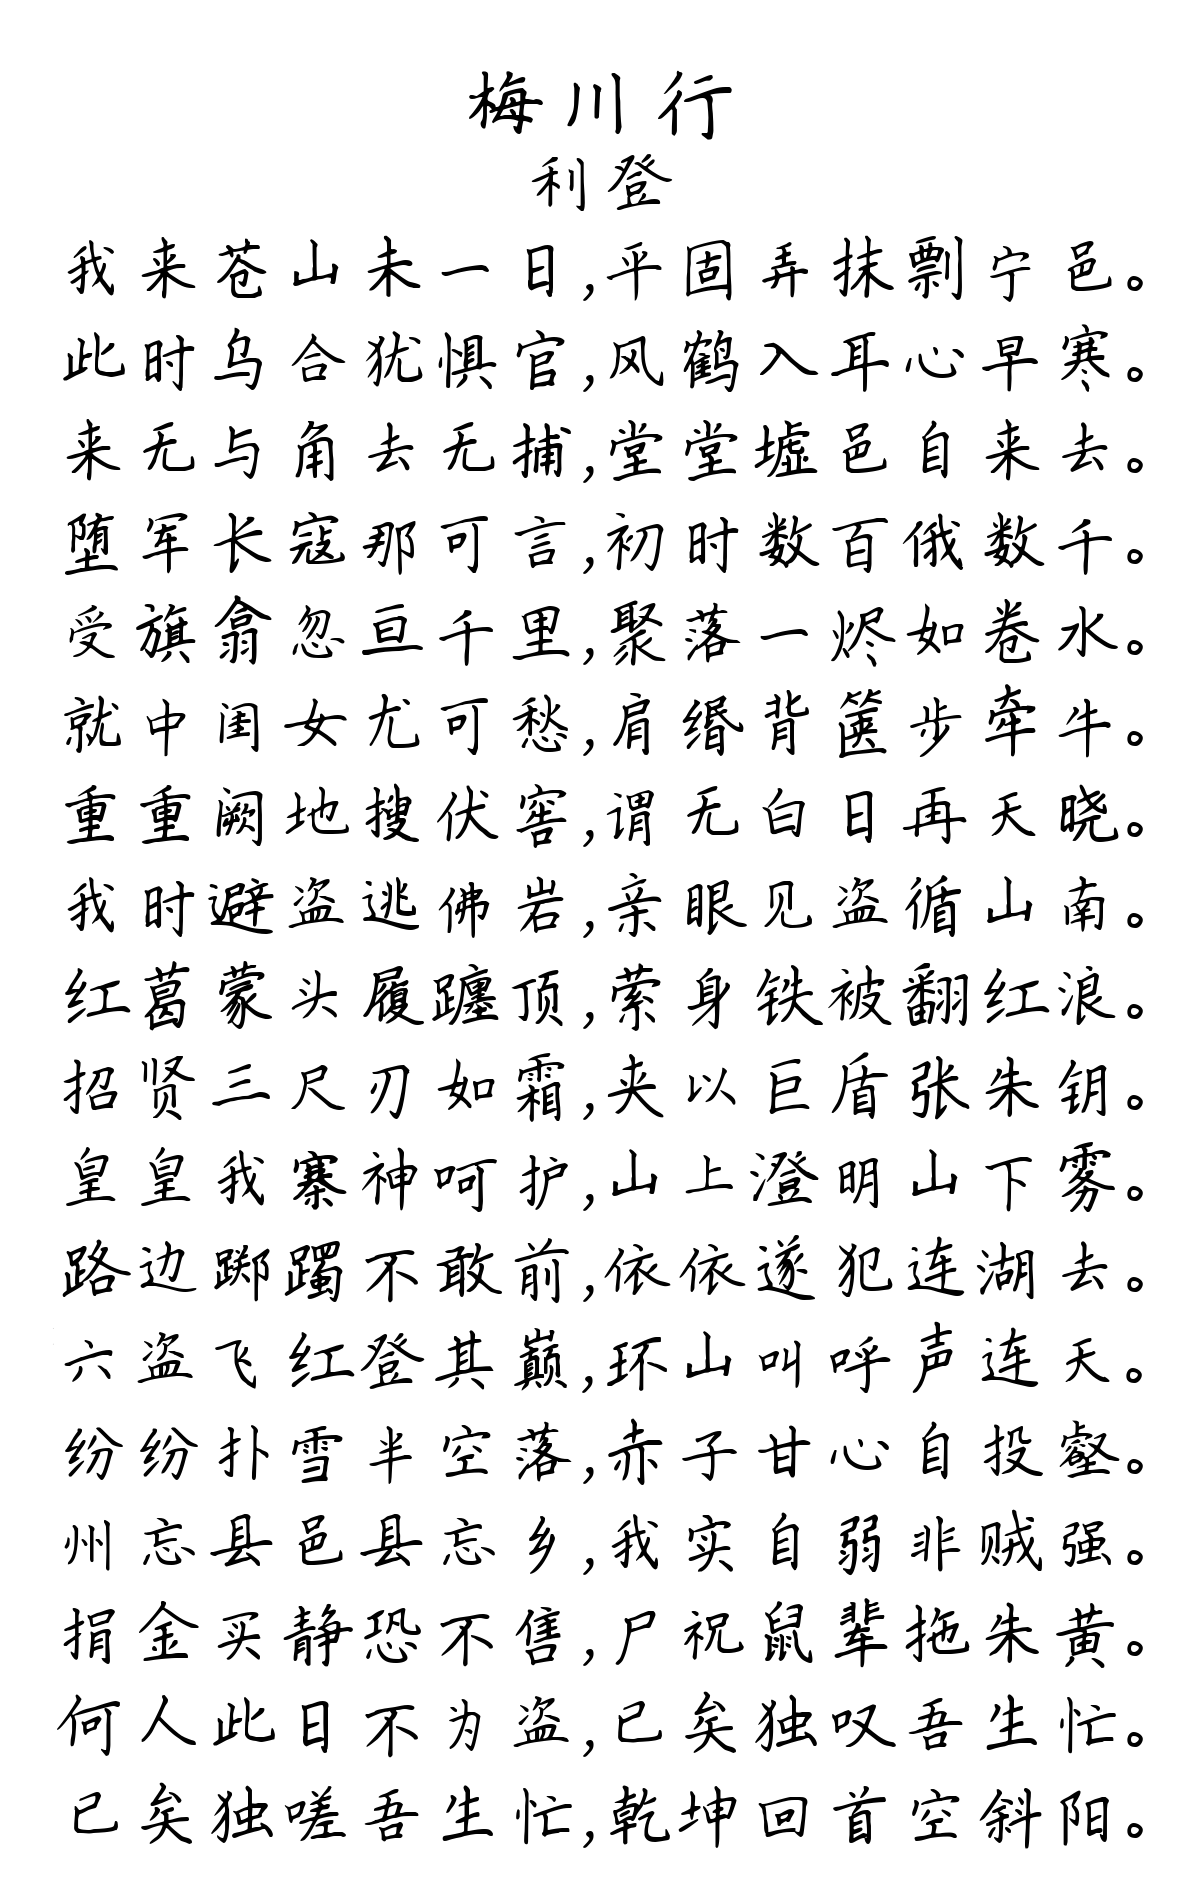 梅川行
利登
我来苍山未一日,平固弄抹剽宁邑。
此时乌合犹惧官,风鹤入耳心早寒。
来无与角去无捕,堂堂墟邑自来去。
堕军长寇那可言,初时数百俄数千。
受旗翕忽亘千里,聚落一烬如卷水。
就中闺女尤可愁,肩缗背箧步牵牛。
重重阙地搜伏窖,谓无白日再天晓。
我时避盗逃佛岩,亲眼见盗循山南。
红葛蒙头履躔顶,萦身铁被翻红浪。
招贤三尺刃如霜,夹以巨盾张朱钥。
皇皇我寨神呵护,山上澄明山下雾。
路边踯躅不敢前,依依遂犯连湖去。
六盗飞红登其巅,环山叫呼声连天。
纷纷扑雪半空落,赤子甘心自投壑。
州忘县邑县忘乡,我实自弱非贼强。
捐金买静恐不售,尸祝鼠辈拖朱黄。
何人此日不为盗,已矣独叹吾生忙。
已矣独嗟吾生忙,乾坤回首空斜阳。